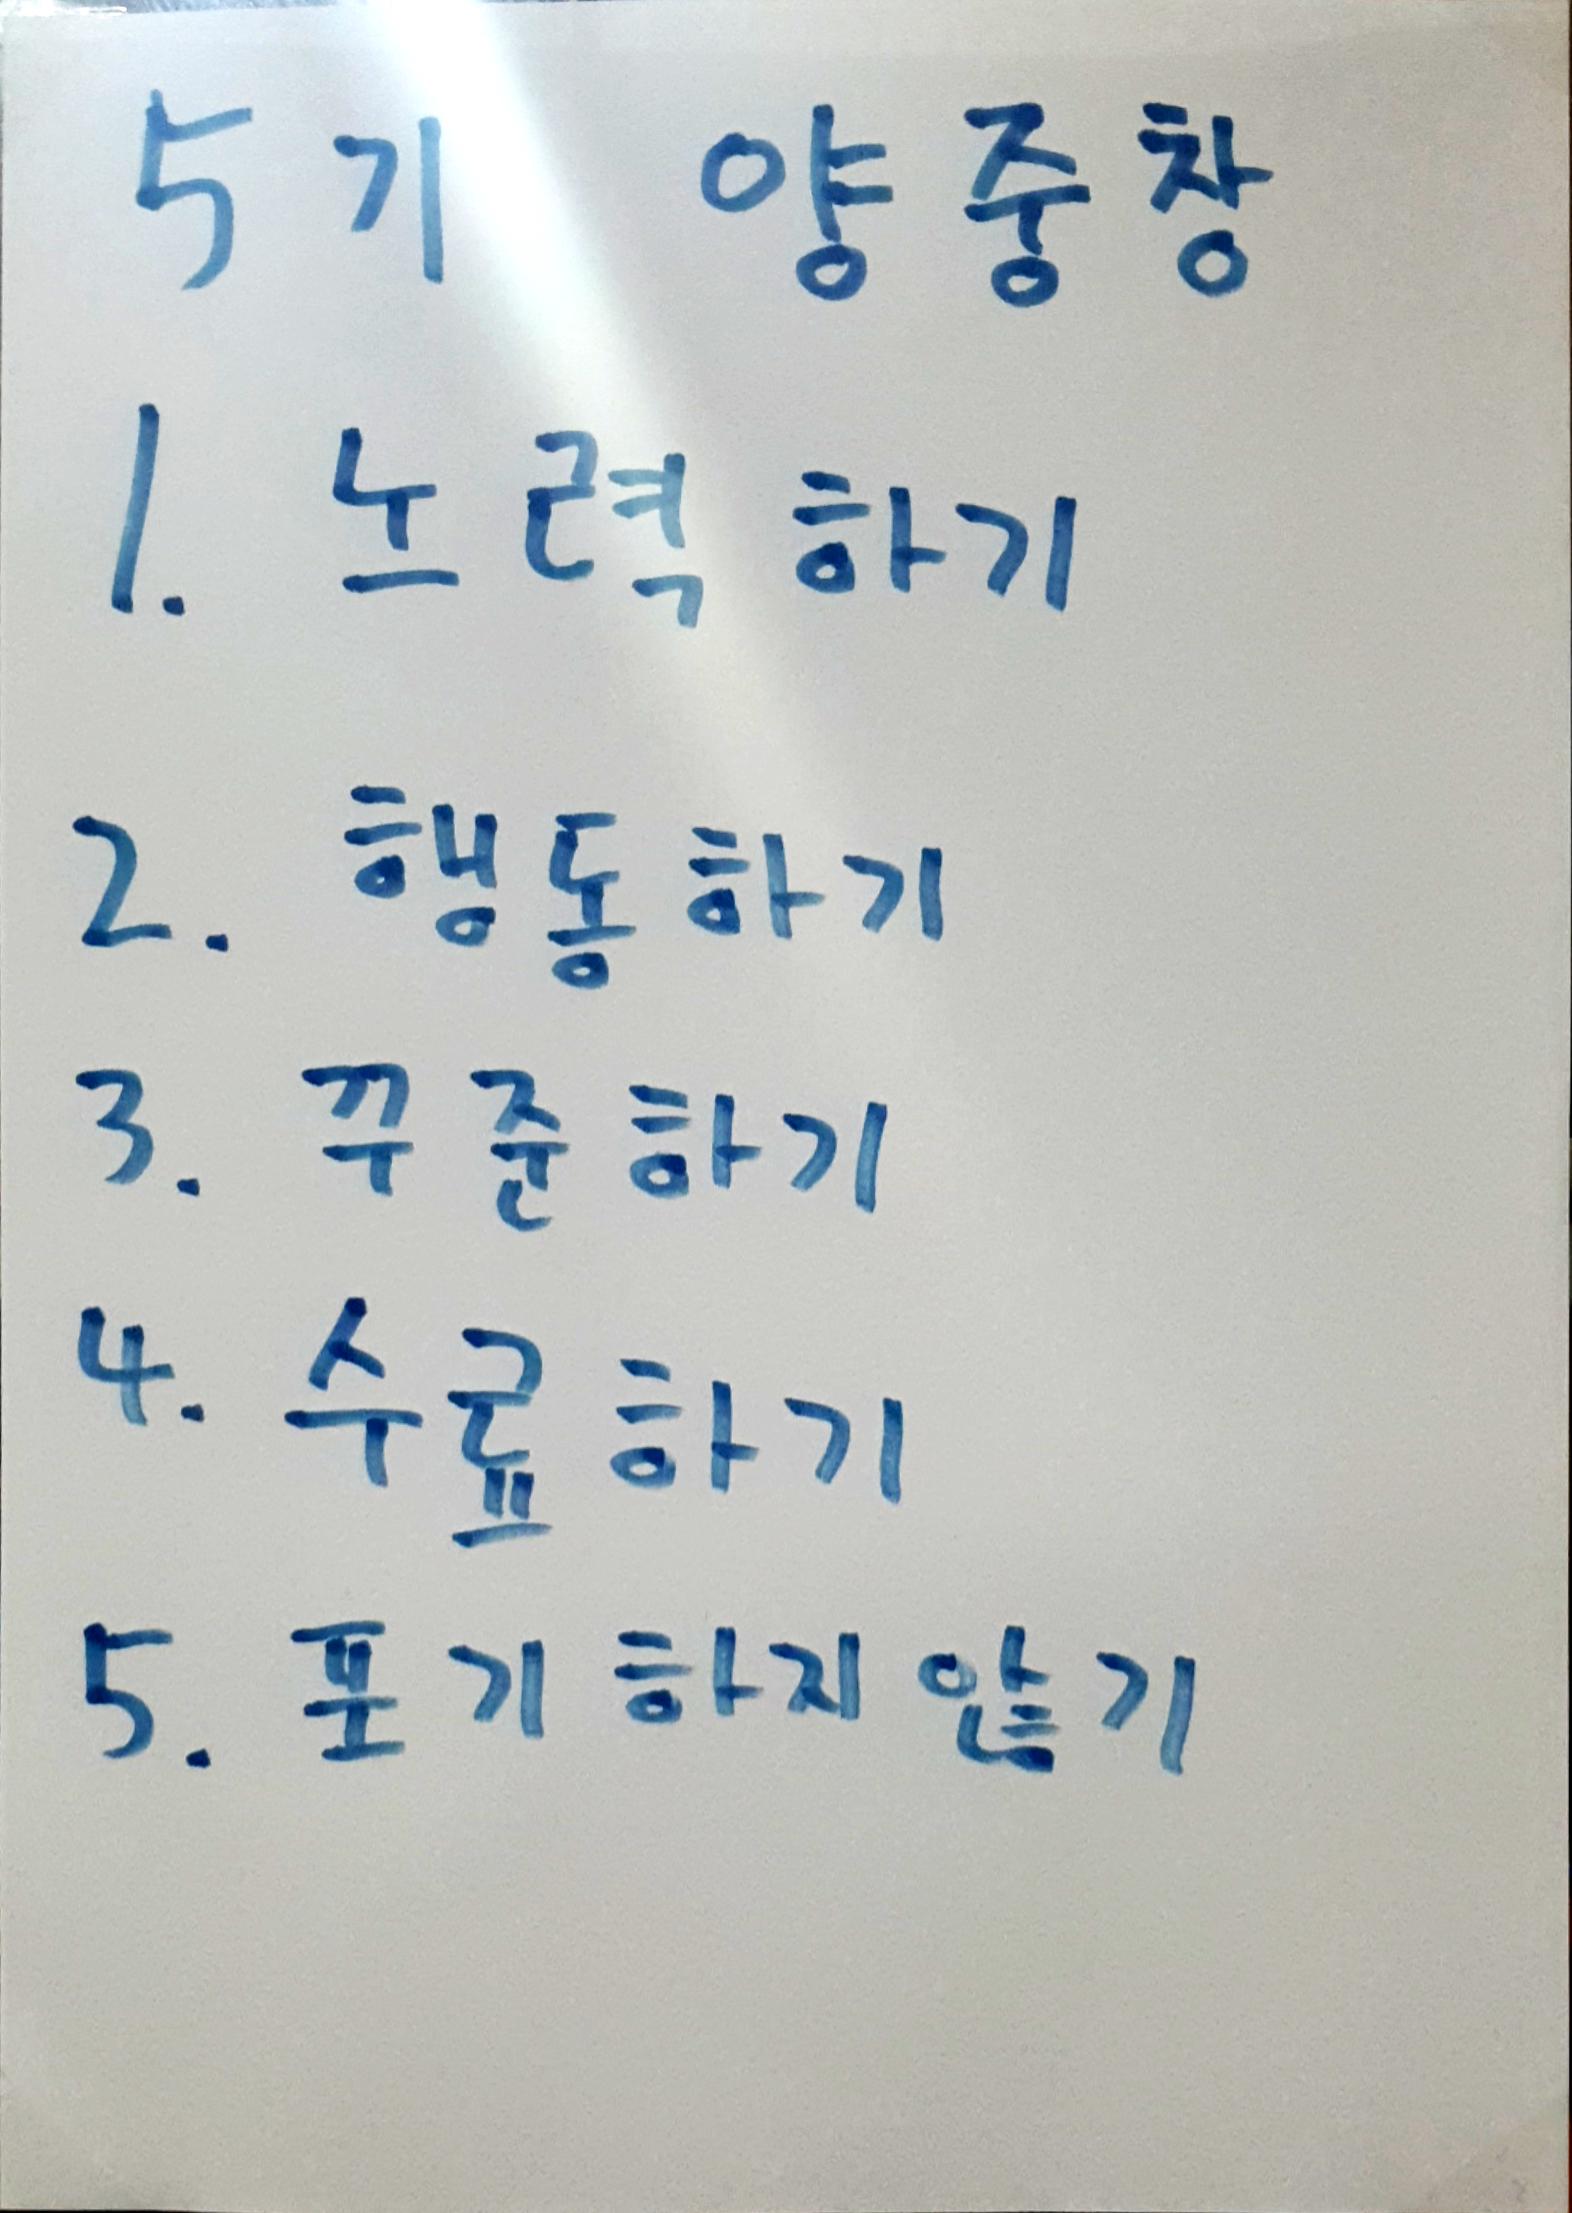 5기 양중창
1. 노력하기
2. 행동하기
3. 꾸준하기
4. 수료하기
5. 포기하지않기